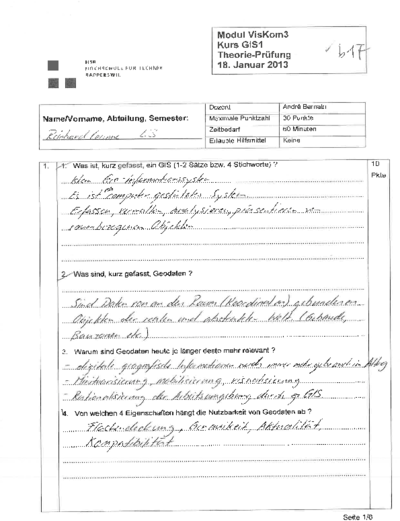 HSR
HOCHSCHULE FÜR TECHNIK
RAPPERSWIL
Modul VisKom3
Kurs GIS1
Theorie-Prüfung
18. Januar 2013
Name/Vorname, Abteilung, Semester:
Dozent André Bernath
Maximale Punktzahl 30 Punkte
Zeitbedarf 60 Minuten
Erlaubte Hilfsmittel Keine
1. 1. Was ist, kurz gefasst, ein GIS (1-2 Sätze bzw. 4 Stichworte) ? 10 Pkte
Geo-informationssystem
Es ist computer gestütztes System
Erfassen, verwalten, analysieren, präsentieren von
raumbezogenen Objekten
2. Was sind, kurz gefasst, Geodaten ?
Sind Daten von an den Raum (Koordinaten) gebundenen
Objekten der realen und abstrakten Welt (Gebäude,
Bauzonen etc.)
3. Warum sind Geodaten heute je länger desto mehr relevant ?
- digitale geografische Informationen immer mehr gebraucht im Alltag
- mobilisierung, visualisierung
- Rationalisierung der durch GIS
4. Von welchen 4 Eigenschaften hängt die Nutzbarkeit von Geodaten ab ?
Flächendeckung, Genauigkeit, Aktualität,
Kompatibilität
Seite 1/8